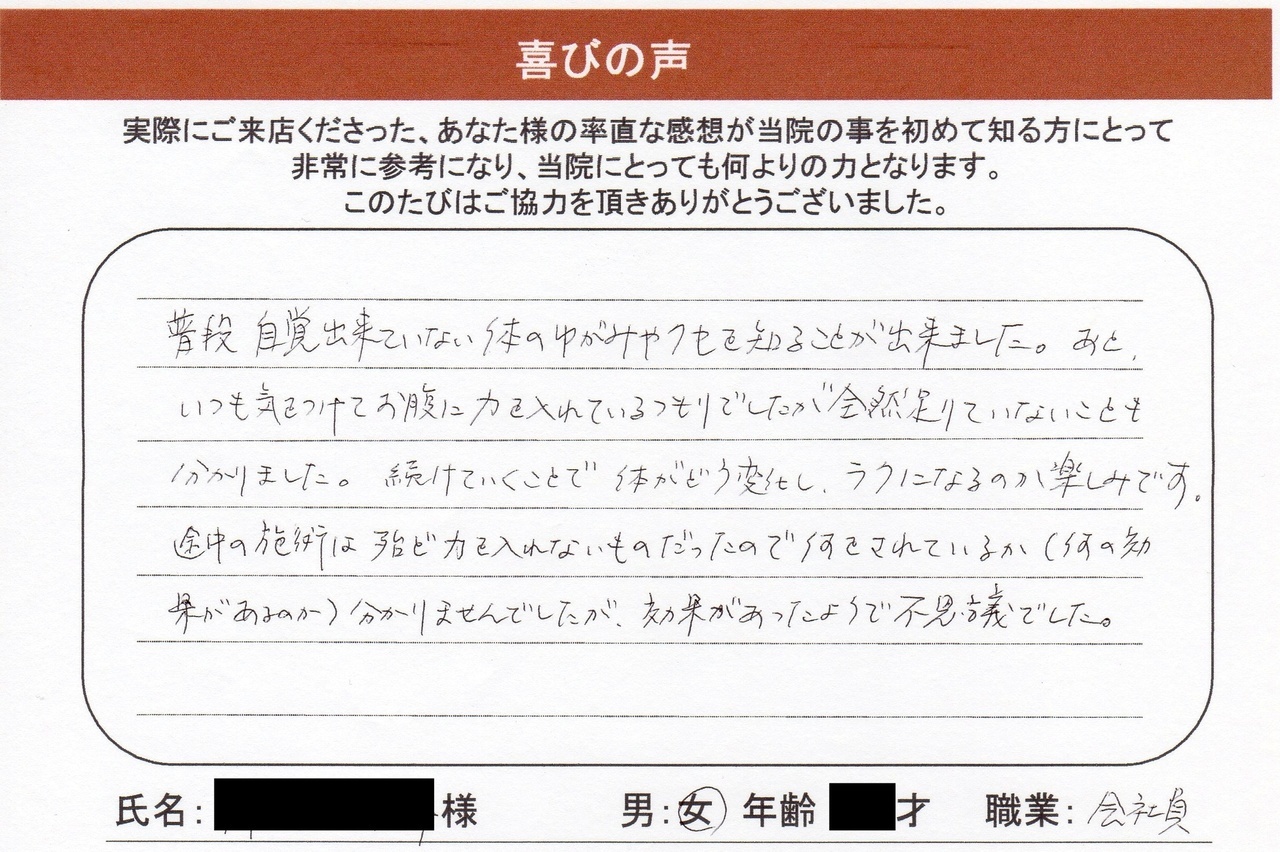 喜びの声
実際にご来店くださった、あなた様の率直な感想が当院の事を初めて知る方にとって
非常に参考になり、当院にとっても何よりの力となります。
このたびはご協力を頂きありがとうございました。
普段 自覚出来ていない体のゆがみやクセを知ることが出来ました。あと、
いつも気をつけてお腹に力を入れているつもりでしたが全然足りていないことも
分かりました。続けていくことで体がどう変化し、ラクになるのか楽しみです。
途中の施術は殆ど力を入れないものだったので何をされているか(何の効
果があるのか)分かりませんでしたが、効果があったようで不思議でした。
氏名: 様 男:女 年齢 才 職業: 会社員